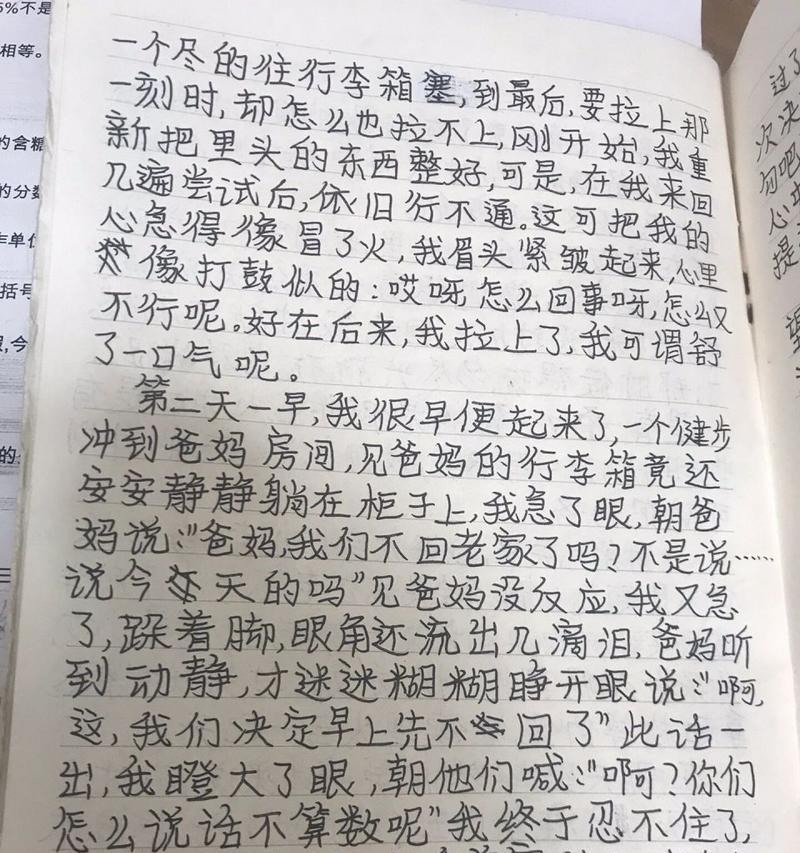 5%不是
相等。
的含糖
的分数
作单位
括号
,今
的
一个尽的往行李箱塞,到最后,要拉上那
一刻时,却怎么也拉不上,刚开始,我重
新把里头的东西整好,可是,在我来回
几遍尝试后,依旧行不通。这可把我的
心急得像冒了火,我眉头紧皱起来,心里
像打鼓似的:哎呀怎么回事呀,怎么又
不行呢。好在后来,我拉上了,我可谓舒
了一口气呢。
第二天一早,我很早便起来了,一个健步
冲到爸妈房间,见爸妈的行李箱竟还
安安静静躺在柜子上,我急了眼,朝爸
妈说:“爸妈,我们不回老家了吗?不是说……
说今天的吗”见爸妈没反应,我又急
了,跺着脚,眼角还流出几滴泪,爸妈听
到动静,才迷迷糊糊睁开眼,说:“啊,
这,我们决定早上先不回了”此话一
出,我瞪大了眼,朝他们喊:“啊?你们
怎么说话不算数呢”我终于忍不住了,
过了
次决
勺吧
心中
提